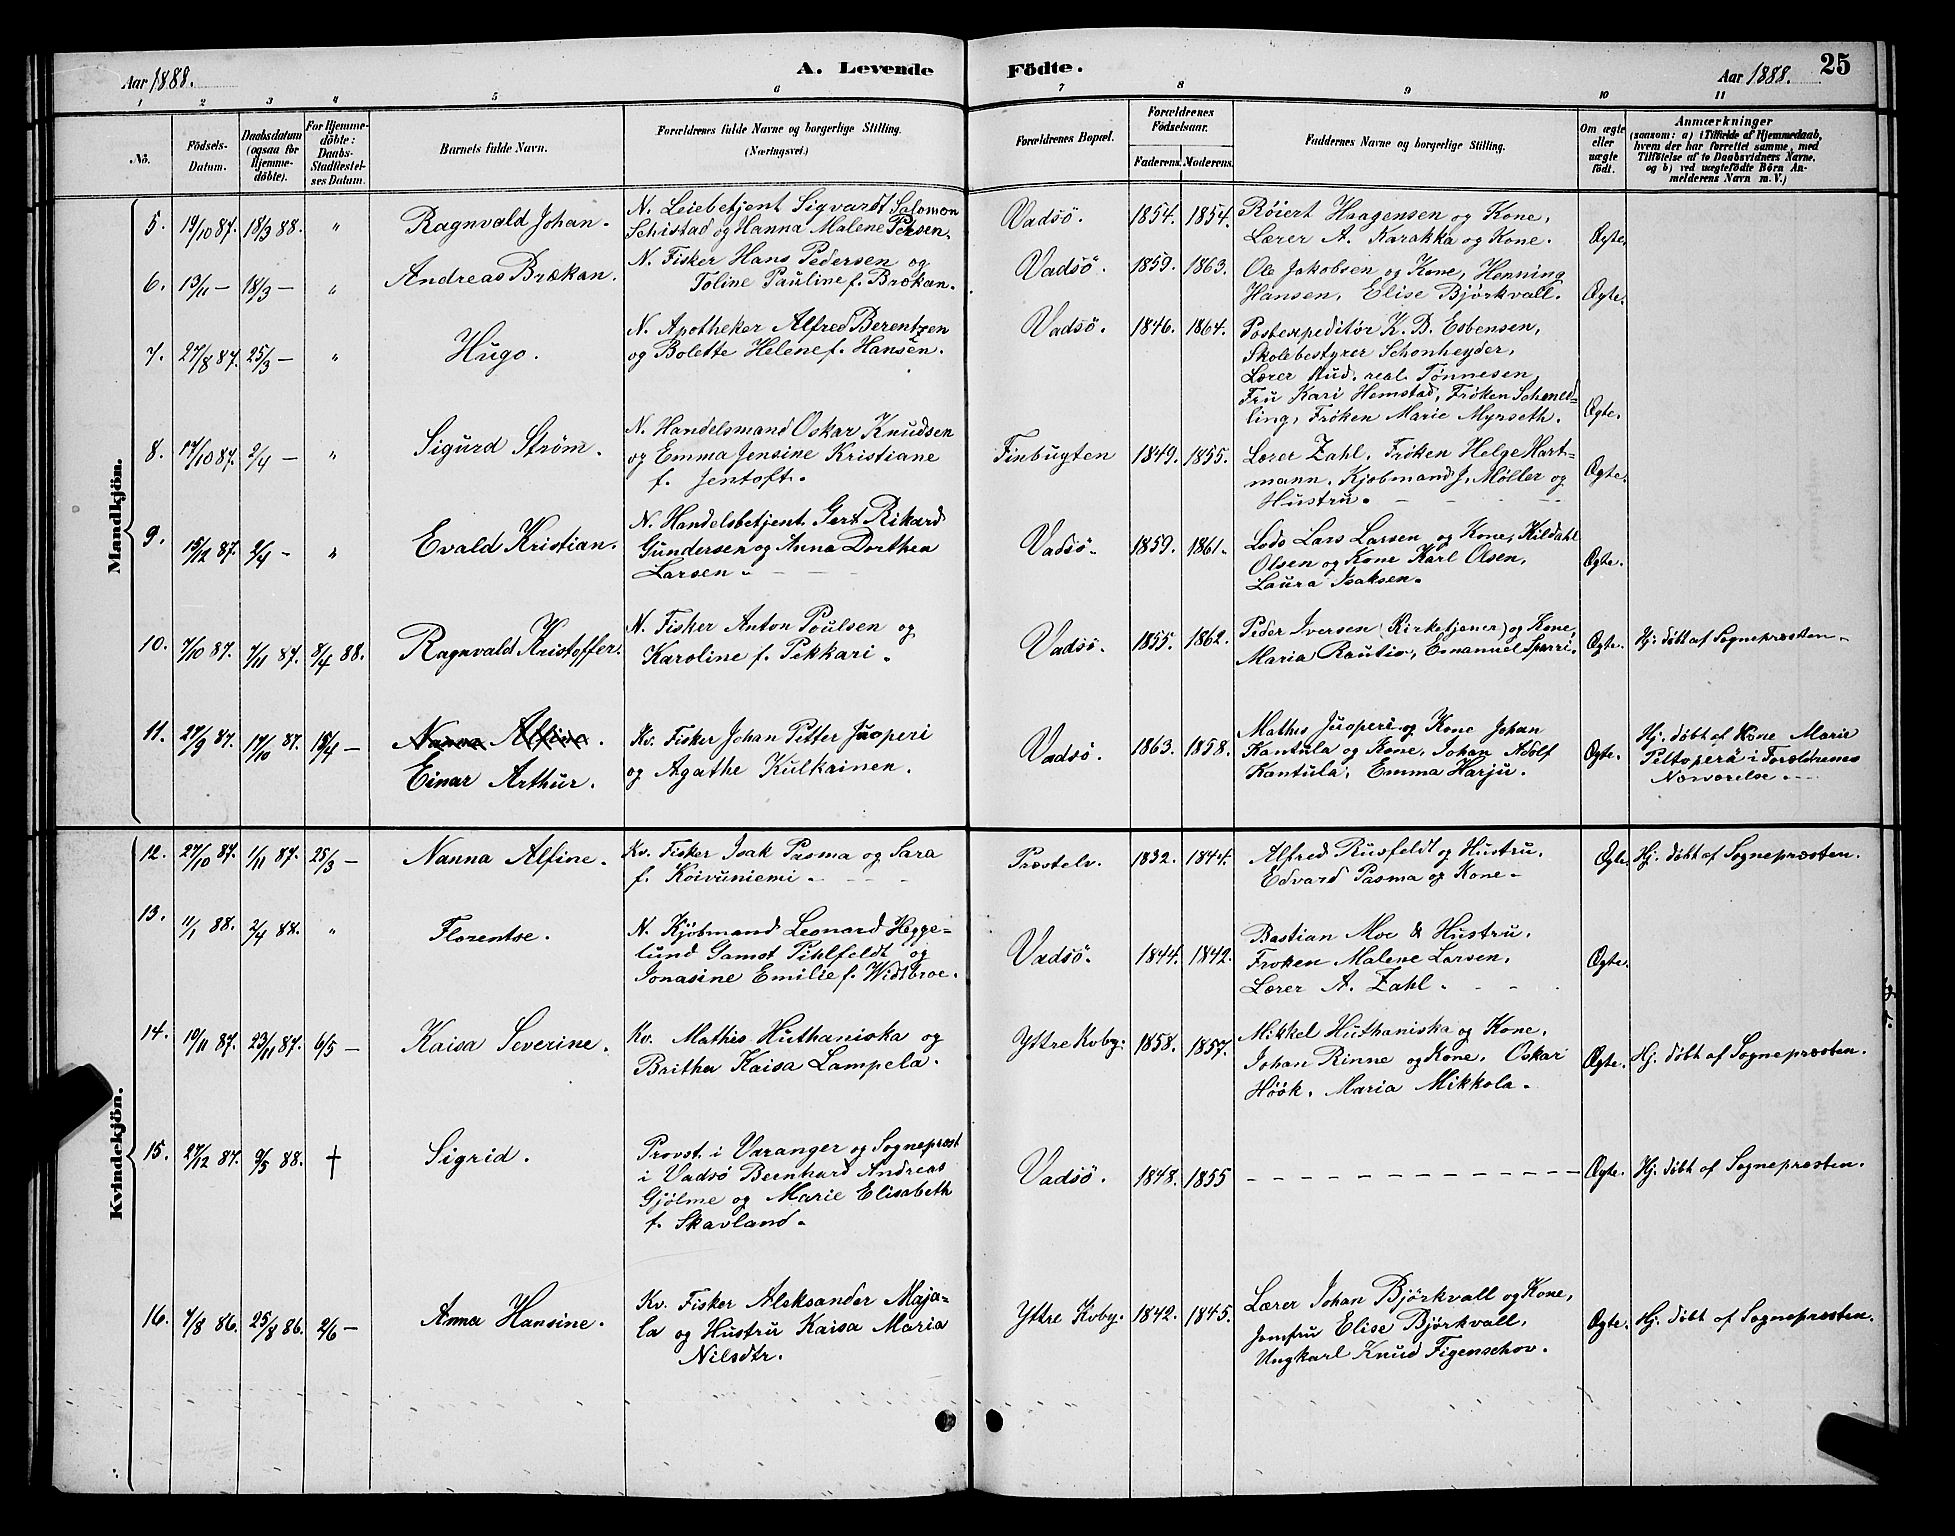 Aar 1888.
A. Levende
Födte.
Aar 1888.
25
1 2 3 4 5 6 7 8 9 10 11
No.
Födsels-
Datum.
Daabsdatum
(ogsaa for
Hjemme-
döbte).
For Hjemme-
döbte:
Daabs-
Stadfæstel-
ses Datum.
Barnets fulde Navn.
Forældrenes fulde Navne og borgerlige Stilling.
(Næringsvei.)
Forældrenes Bopæl.
Forældrenes
Födselsaar.
Faderens. Moderens.
Faddernes Navne og borgerlige Stilling.
Om ægte
eller
uægte
födt.
Anmærkninger
(saasom: a) i Tilfælde af Hjemmedaab,
hvem der har forrettet samme, med
Tilføielse af to Daabsvidners Navne,
og b) ved uægtefödte Börn An-
melderens Navn m. V.)
Mandkjön.
5. 19/10 87. 18/3 88. " Ragnvald Johan.
N. Leiebetjent Sigvardt Salomon
Schistad og Hanna Malene Persen.
Vadsö. 1854. 1854.
Röiert Haagensen og Kone,
Lærer A. Karakka og Kone.
Ægte.
6. 13/11 — 18/3 — " Andreas Brækan.
N. Fisker Hans Pedersen og
Toline Pauline f. Brækan.
Vadsö. 1859. 1863.
Ole Jakobsen og Kone, Henning
Hansen, Elise Björkvall.
Ægte.
7. 27/8 87. 25/3 — " Hugo.
N. Apotheker Alfred Berentzen
og Bolette Helene f. Hansen.
Vadsö. 1846. 1864.
Postexpeditör K. B. Esbensen,
Skolebestyrer Schonheyder,
Lærer stud. real. Tönnesen,
Fru Kari Hemstad, Fröken Schmed-
ling, Fröken Marie Myrseth.
Ægte.
8. 17/10 87. 2/4 — " Sigurd Ström.
N. Handelsmand Oskar Knudsen
og Emma Jensine Kristiane
f. Jentoft.
Finbugten 1849. 1855.
Lærer Zahl, Fröken Helge Hart-
mann, Kjöbmand J. Möller og
Hustru.
Ægte.
9. 15/12 87. 2/4 — " Evald Kristian.
N. Handelsbetjent Gert Rikard
Gundersen og Anna Dorthea
Larsen.
Vadsö. 1859. 1861.
Lods Lars Larsen og Kone, Kildahl
Olsen og Kone Karl Olsen,
Laura Isaksen.
Ægte.
10. 7/10 87. 7/11 87. 8/4 88. Ragnvald Kristoffer.
N. Fisker Anton Poulsen og
Karoline f. Pekkari.
Vadsö. 1855. 1862.
Peder Iversen (Kirketjener) og Kone,
Maria Rautio, Emanuel Sparri.
Ægte. Hj. döbt af Sognepræsten.
11. 27/9 87. 17/10 87. 15/4 — Nanna Alfine.
Einar Arthur.
Kv. Fisker Johan Petter Juoperi
og Agathe Kulkainen.
Vadsö. 1863. 1858.
Mathis Juoperi og Kone Johan
Kantula og Kone, Johan Adolf
Kantula, Emma Harju.
Ægte.
Hj. döbt af Kone Maria
Peltoperä i Forældrenes
Nærværelse.
Kvindekjön.
12. 27/10 87. 1/11 87. 25/3 — Nanna Alfine.
Kv. Fisker Isak Pasma og Sara
f. Koivuniemi.
Præstelv. 1832. 1844.
Alfred Rusfeldt og Hustru,
Edvard Pasma og Kone.
Ægte. Hj. döbt af Sognepræsten.
13. 11/1 88. 2/4 88. " Florentse.
N. Kjöbmand Leonard Hegge-
lund Gamst Pihlfeldt og
Jonasine Emilie f. Widsbroe.
Vadsö. 1844. 1842.
Bastian Moe & Hustru,
Froken Malene Larsen,
Lærer A. Zahl.
Ægte.
14. 19/11 87. 23/11 87. 6/5 — Kaisa Severine.
Kv. Mathis Huthaniska og
Britha Kaisa Lampela.
Yttre Koby. 1858. 1857.
Mikkel Huthaniska og Kone,
Johan Rinne og Kone, Oskar
Höök, Maria Mikkola.
Ægte. Hj. döbt af Sognepræsten.
15. 27/12 87. 9/5 88. † Sigrid.
Provst i Varanger og Sognepræst
i Vadsö Bernhard Andreas
Gjölme og Marie Elisabeth
f. Skavland.
Vadsö. 1848. 1855
Ægte. Hj. döbt af Sognepræsten.
16. 7/8 86. 25/8 86. 2/6 — Anna Hansine.
Kv. Fisker Aleksander Maja-
la og Hustru Kaisa Maria
Nilsdtr.
Yttre Koby. 1842. 1845.
Lærer Johan Björkvall og Kone,
Jomfru Elise Björkvall,
Ungkarl Knud Figenschov.
Ægte. Hj. döbt af Sognepræsten.